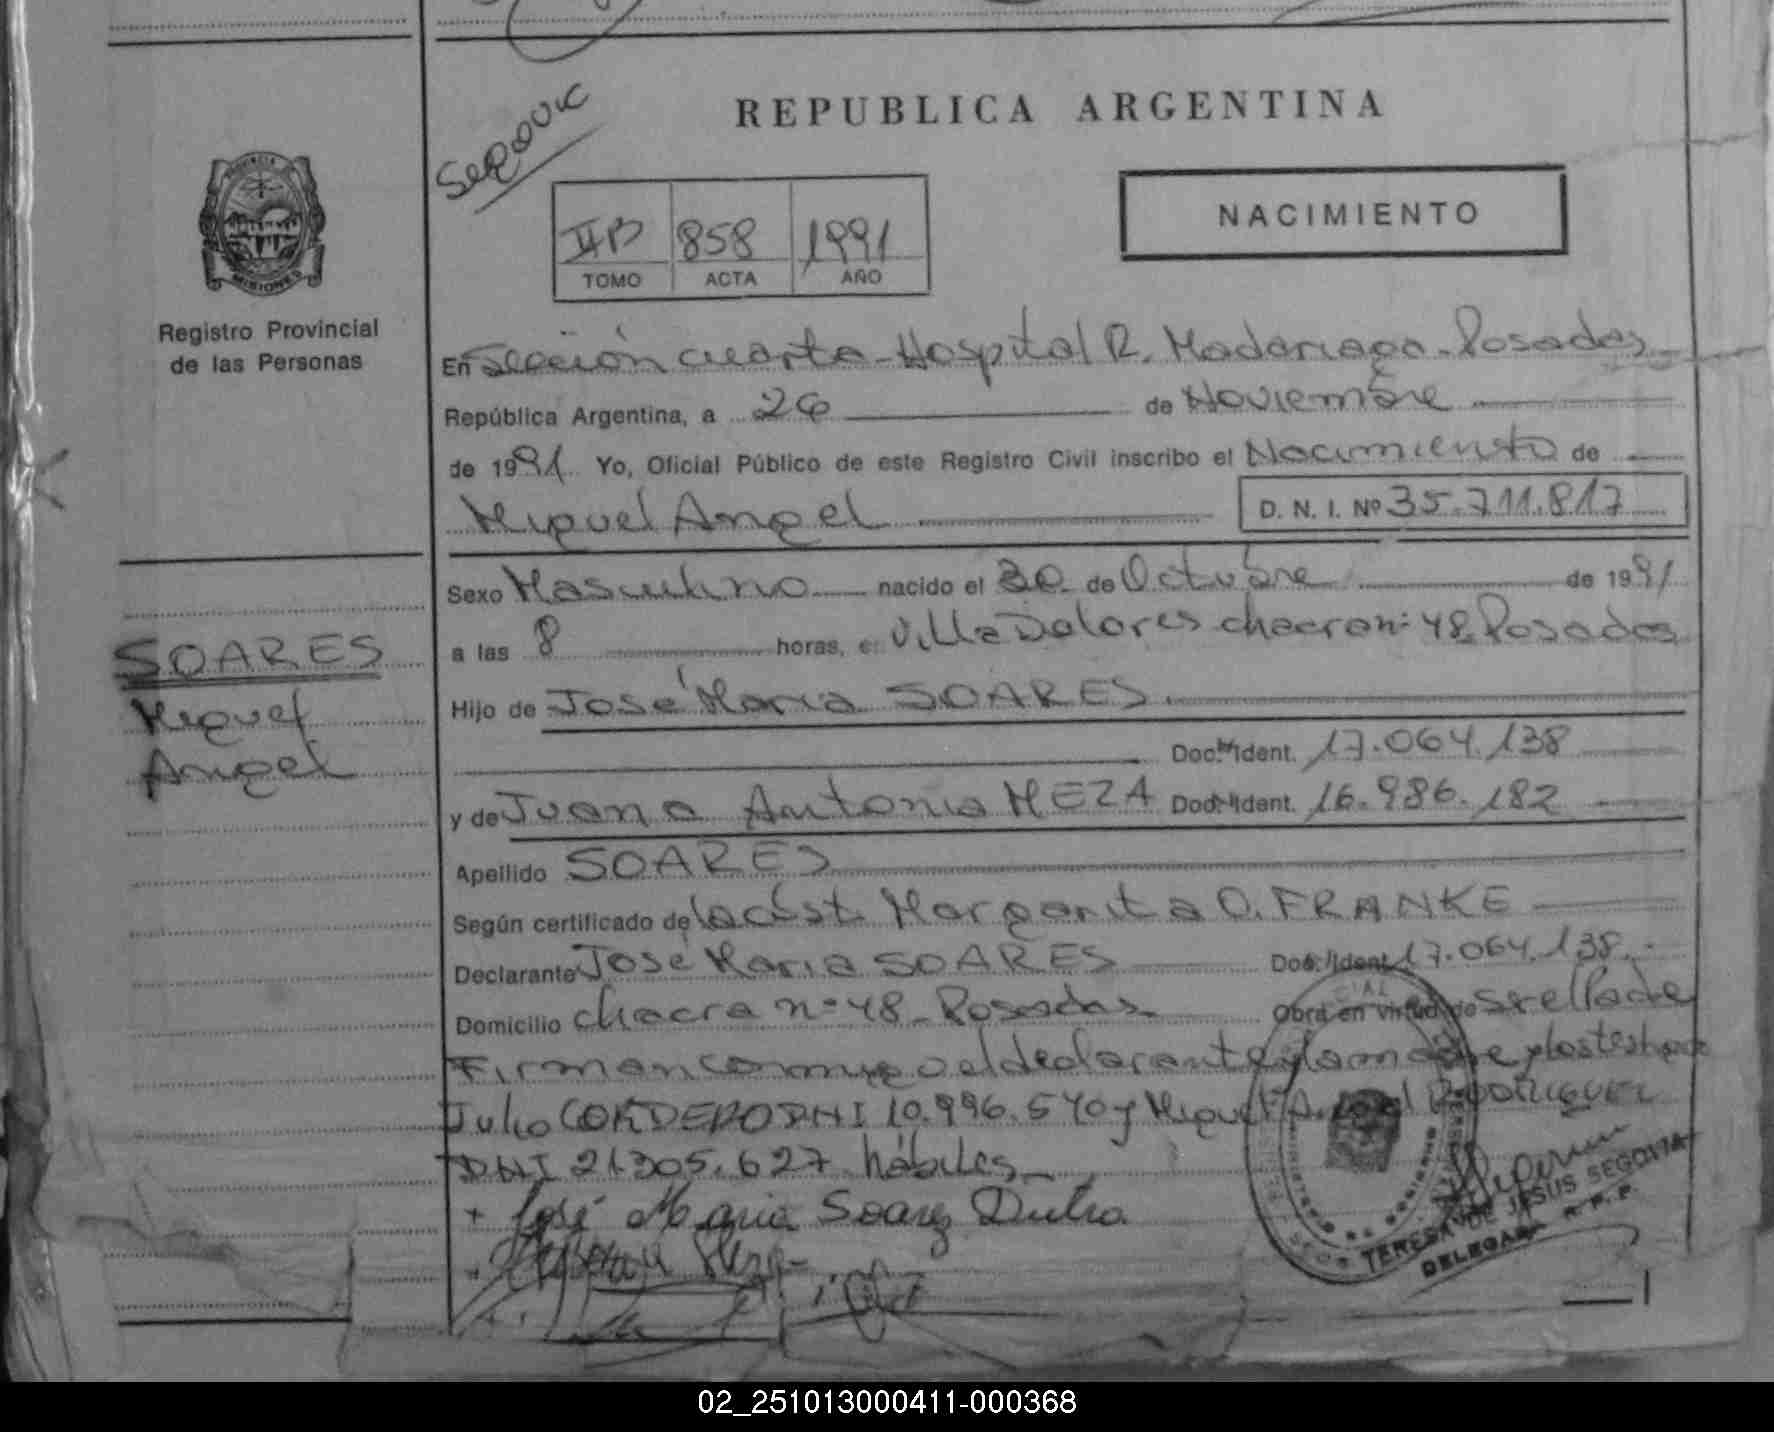 REPUBLICA ARGENTINA
NACIMIENTO
II B 858 1991
TOMO ACTA AÑO
MISIONES
Registro Provincial
de las Personas
En Sección cuarta - Hospital R. Madariaga - Posadas
República Argentina, a 26 de Noviembre
de 1991 Yo, Oficial Público de este Registro Civil inscribo el Nacimiento de
Miguel Angel
D. N. I. Nº 35.711.817
Sexo Masculino nacido el 30 de Octubre de 1991
a las 8 horas, e: Villa Dolores chacra nº 48 Posadas
SOARES
Miguel
Angel
Hijo de José Maria SOARES
Doc. Ident. 17.064.138
y de Juana Antonia MEZA Doc. Ident. 16.986.182
Apellido SOARES
Según certificado de la obst. Margarita O. FRANKE
Declarante José Maria SOARES Doc. Ident. 17.064.138
Domicilio chacra nº 48 - Posadas Obra en virtud de
Firman conmigo el declarante y la madre y los testigos
Julio CORDERO DNI 10.996.540 y Miguel Angel RODRIGUEZ
DNI 21.305.627 hábiles
+ José Maria Soarez Dutra
TERESA DE JESUS SEGOVIA
DELEGADA R. P. P.
02_251013000411-000368